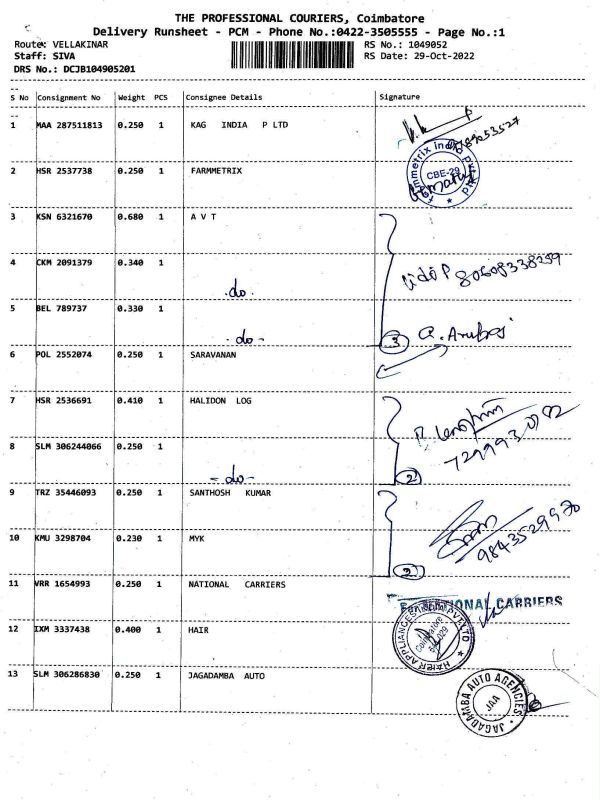 THE PROFESSIONAL COURIERS, Coimbatore
Delivery Runsheet - PCM - Phone No.:0422-3505555 - Page No.:1
Route: VELLAKINAR RS No.: 1049052
Staff: SIVA RS Date: 29-Oct-2022
DRS No.: DCJB104905201
S No Consignment No Weight PCS Consignee Details Signature
1 MAA 287511813 0.250 1 KAG INDIA P LTD
2 HSR 2537738 0.250 1 FARMMETRIX
CBE-29
3 KSN 6321670 0.680 1 A V T
4 CKM 2091379 0.340 1
-do-
5 BEL 789737 0.330 1
-do- 3
6 POL 2552074 0.250 1 SARAVANAN
7 HSR 2536691 0.410 1 HALIDON LOG
8 SLM 306244066 0.250 1
-do- 2
9 TRZ 35446093 0.250 1 SANTHOSH KUMAR
9843529970
10 KMU 3298704 0.230 1 MYK
2
11 VRR 1654993 0.250 1 NATIONAL CARRIERS
NATIONAL CARRIERS
12 IXM 3337438 0.400 1 HAIR
HAIER APPLIANCES
Coimbatore
13 SLM 306286830 0.250 1 JAGADAMBA AUTO
JAGADAMBA AUTO AGENCIES
JAA